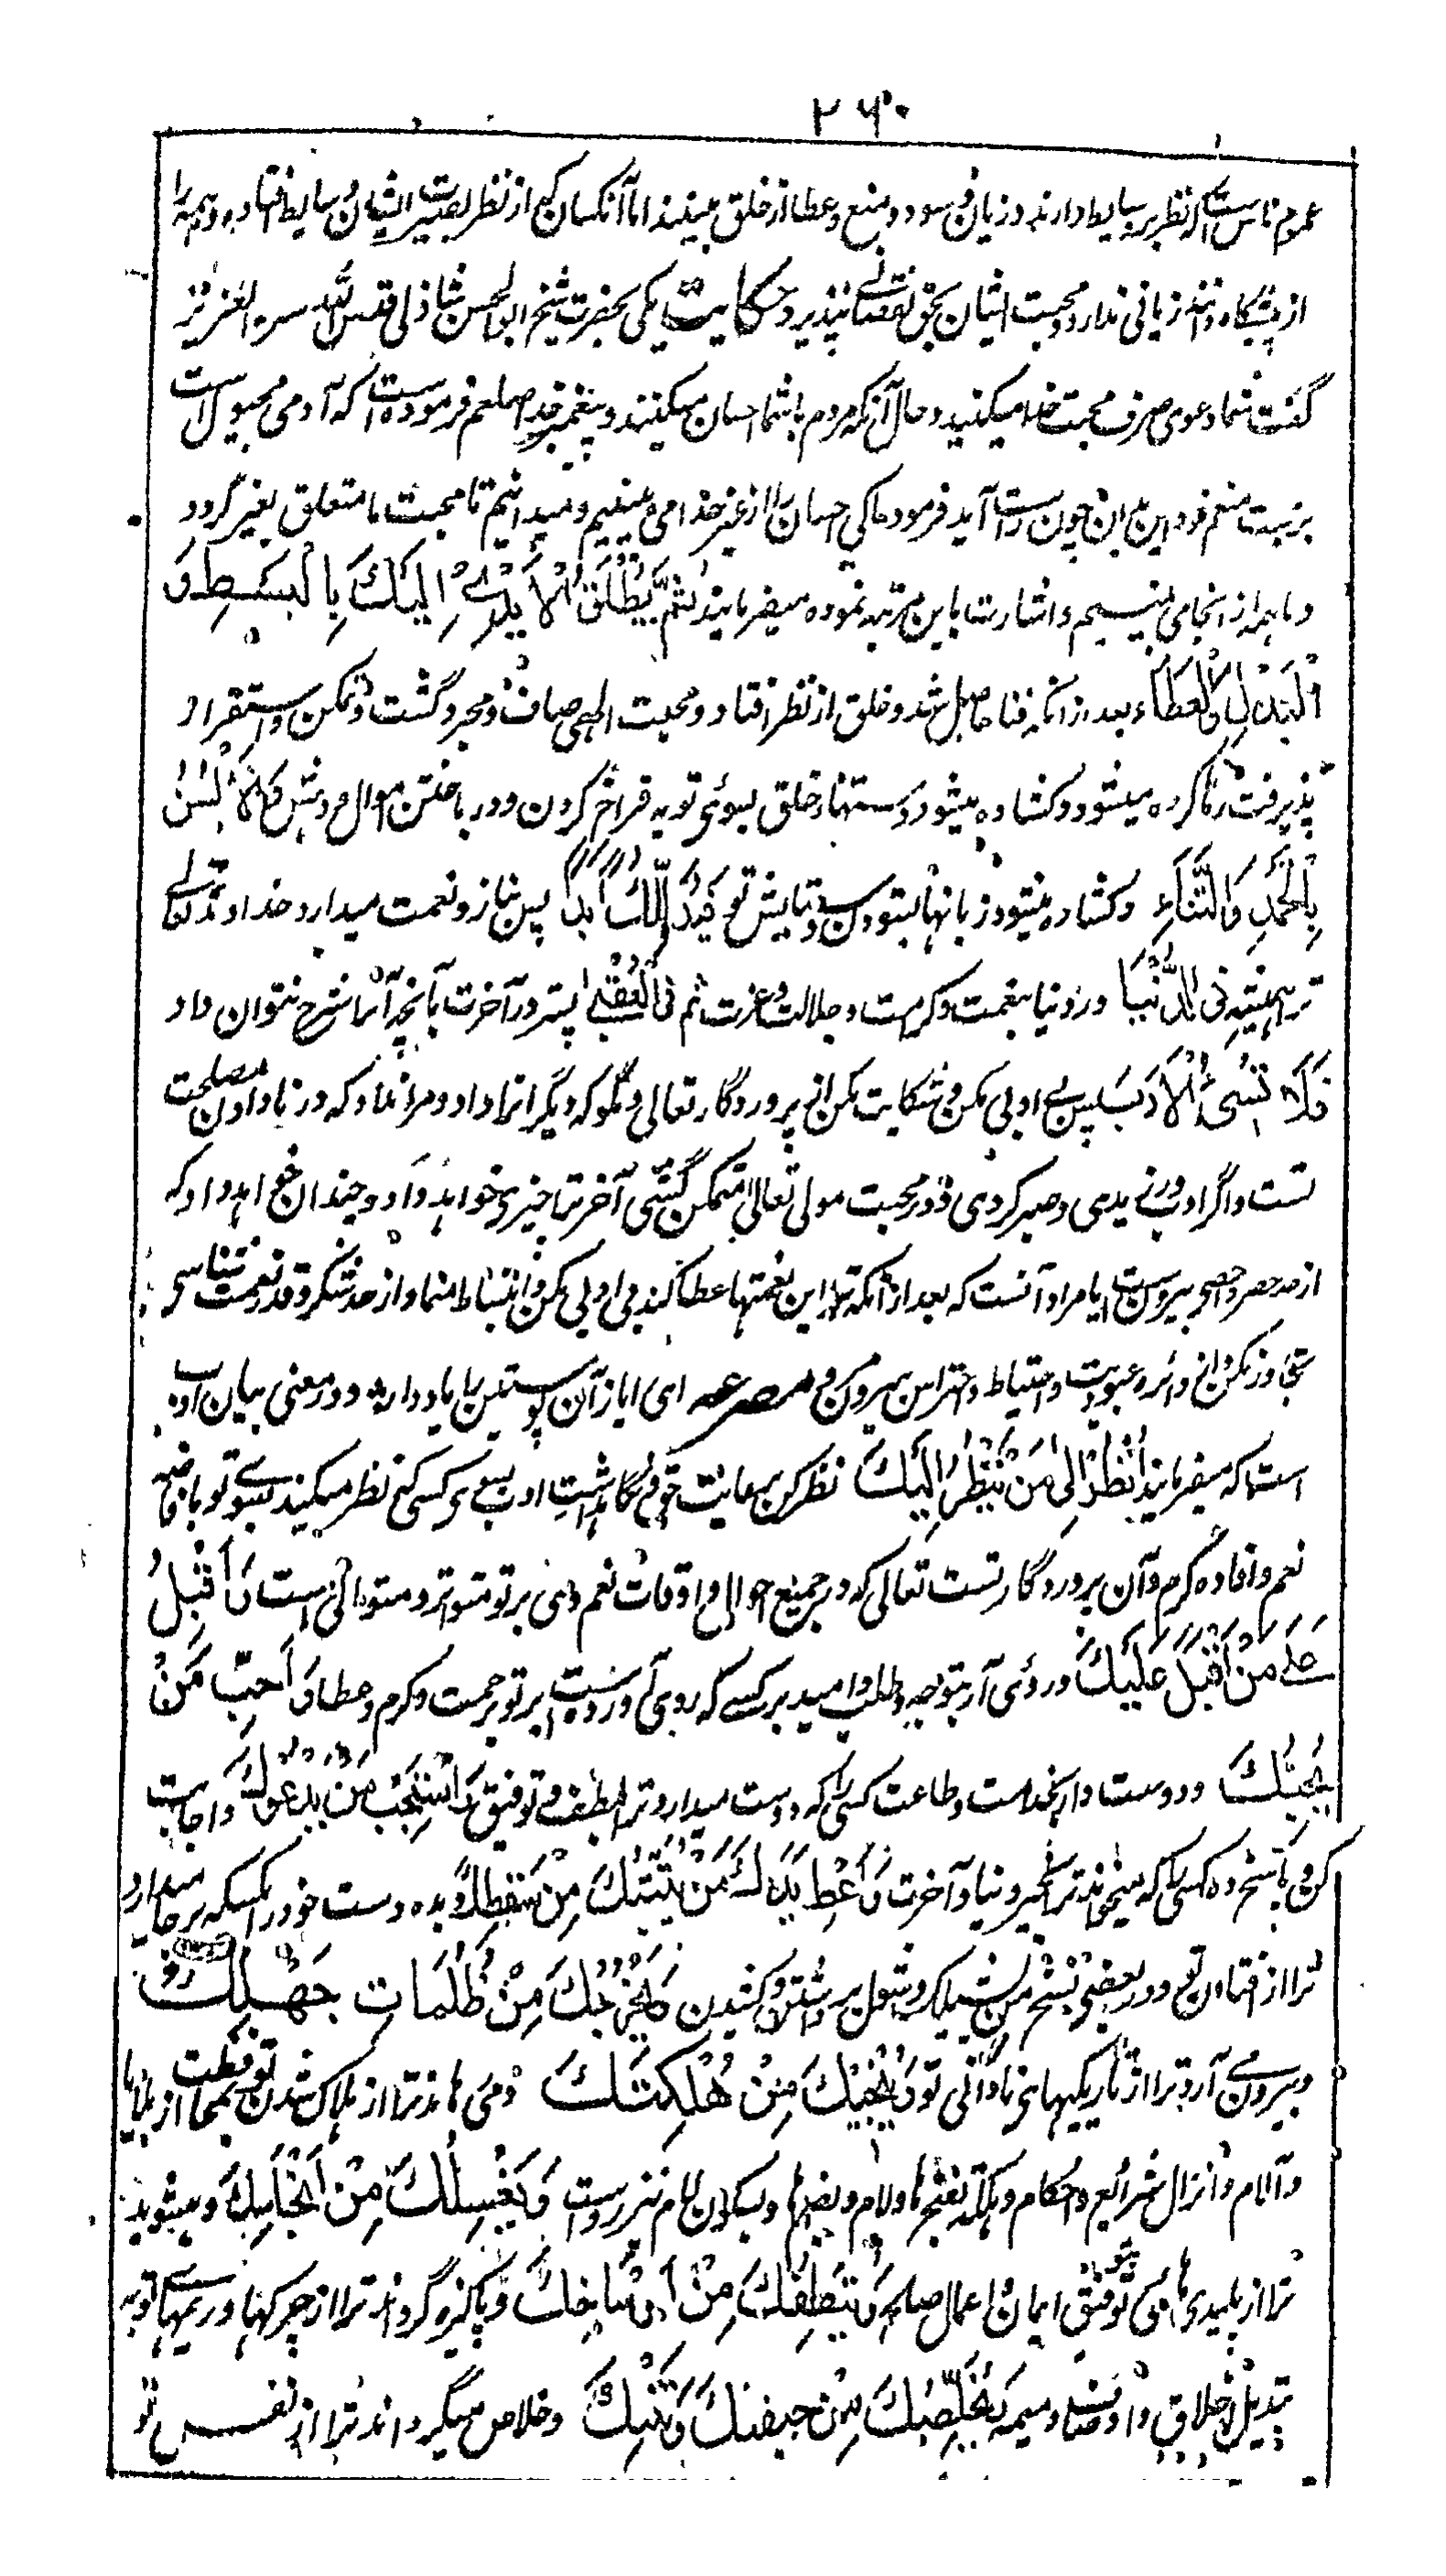 ۲۶۰
عموم ناس است که نظر بر وسایط دارند و زیان و سود و منع و عطا از خلق بینند اما آنکسان که از نظر بصیرت ایشان وسایط افتاده و همه را
از پیشگاه دانند زیانی ندارد و محبت ایشان بحق نقصانے نپذیرد حکایت یکی بحضرت شیخ ابوالحسن شاذلی قدس الله سره العزیز
گفت شما دعوی صرف محبت خدا میکنید و حال آنکه مردم باشما احسان میکنند و پیغمبر خدا صلعم فرموده است که آدمی مجبول است
بر محبت منعم خود این بر ان چون راست آید فرمود ما کی احسان را از غیر خدا می بینیم و میدانیم تا محبت ما متعلق بغیر گردد
و ما همه از انجا می بینیم و اشارت باین مرتبه نموده میفرمایند ثُمَّ یُطْلَقُ اَلْاَیْدِے اِلَیْكَ بِالْبَسْطِ وَ
الْبَذْلِ وَالْعَطَاءِ بعد از آنکه فنا حاصل شد و خلق از نظر افتاد و محبت الهی صاف و مجرد گشت و تمکن و استقرار
پذیرفت رها کرده میشود و کشاده میشود دستهای خلق بسوئی تو به فراخ کردن و در باختن اموال و بخشش وَالْاَلْسُنُ
بِالْحَمْدِ وَالثَّنَاءِ وکشاده میشود زبانها بستودن و ستایش تو فَیُدَلِّلُكَ اَبَدًا پس بناز و نعمت میدارد خداوند تعالے
ترا همیشه فِی الدُّنْیَا در دنیا بنعمت و کرامت و جلالت و عزت ثم فی الْعُقْبٰی پستر در آخرت بآنچه آنرا شرح نتوان داد
فَلَا تُسِیْءِ الْاَدَبَ پس بے ادبی مکن و شکایت مکن از پروردگار تعالی و مگو که دیگرانرا داد و مرا نداد که در نادادن مصلحت
تست و اگر ادب ورزیدی و صبر کردی و در محبت مولی تعالی متمکن گشتی آخر ترا چیزی خواهد داد و چندان خواهد داد که
از حد حصر و احصا بیرونست یا مراد آنست که بعد از آنکه ترا این نعمتها عطا کنند بی ادبی مکن و انبساط منما و از حد شکر و قدر نعمت شناسی
تجاوز مکن و از دائره عبودیت و احتیاط و احتراس بیرون مرو مصرعه ای ایاز آن پوستین را یاد دار و در معنی بیان ادب
است که میفرمایند اُنْظُرْ اِلٰی مَنْ یَّنْظُرُ اِلَیْكَ نظر کن برعایت حقوق و نگاهداشت ادب بسوی کسی که نظر میکند بسوے تو بافاضه
نعم و افاده کرم و آن پروردگار تست تعالی که در جمیع احوال و اوقات نعم وی بر تو متواتر و متوالی است وَاَقْبِلْ
عَلٰے مَنْ اَقْبَلَ عَلَیْكَ و روئی آر بتوجه و طلب و امید بر کسے که روی آورده است بر تو برحمت و کرم و عطا وَاَحِبَّ مَنْ
یُحِبُّكَ و دوست دار بخدمت و طاعت کسی را که دوست میدارد ترا بلطف و توفیق وَاسْتَجِبْ مَنْ یَدْعُوْكَ و اجابت
کن و پاسخ ده کسی را که میخواند ترا بخیر دنیا و آخرت وَاَعْطِ یَدَكَ مَنْ یُّثَبِّتُكَ مِنْ سَقْطِكَ و بده دست خود را بکسیکه بر جا میدارد
ترا از افتادن تو و در بعضی نسخ من یشیلك و شول برداشتن و کشیدن وَیُخْرِجُكَ مِنْ ظُلُمَاتِ جَهْلِكَ
و بیرون مے آرد ترا از تاریکیهای نادانی تو وَیُنْجِیْكَ مِنْ هُلْكَتِكَ و می رهاند ترا از هلاک شدن تو
و آثام و انزال شرائع و احکام و هلکة بفتح ها و لام و بضم ها و سکون لام نیز رواست وَیَغْسِلُكَ مِنْ اَنْجَاسِكَ و میشوید
ترا از پلیدی های تو بتوفیق ایمان و اعمال صالحه وَیُنَظِّفُكَ مِنْ اَوْسَاخِكَ و پاکیزه گرداند ترا از چرکها و ریمهائے تو به
تبدیل اخلاق و اوصاف ذمیمه وَیُخَلِّصُكَ مِنْ جِیْفَتِكَ وَنَتْنِكَ و خلاص میگرداند ترا از نفس تو